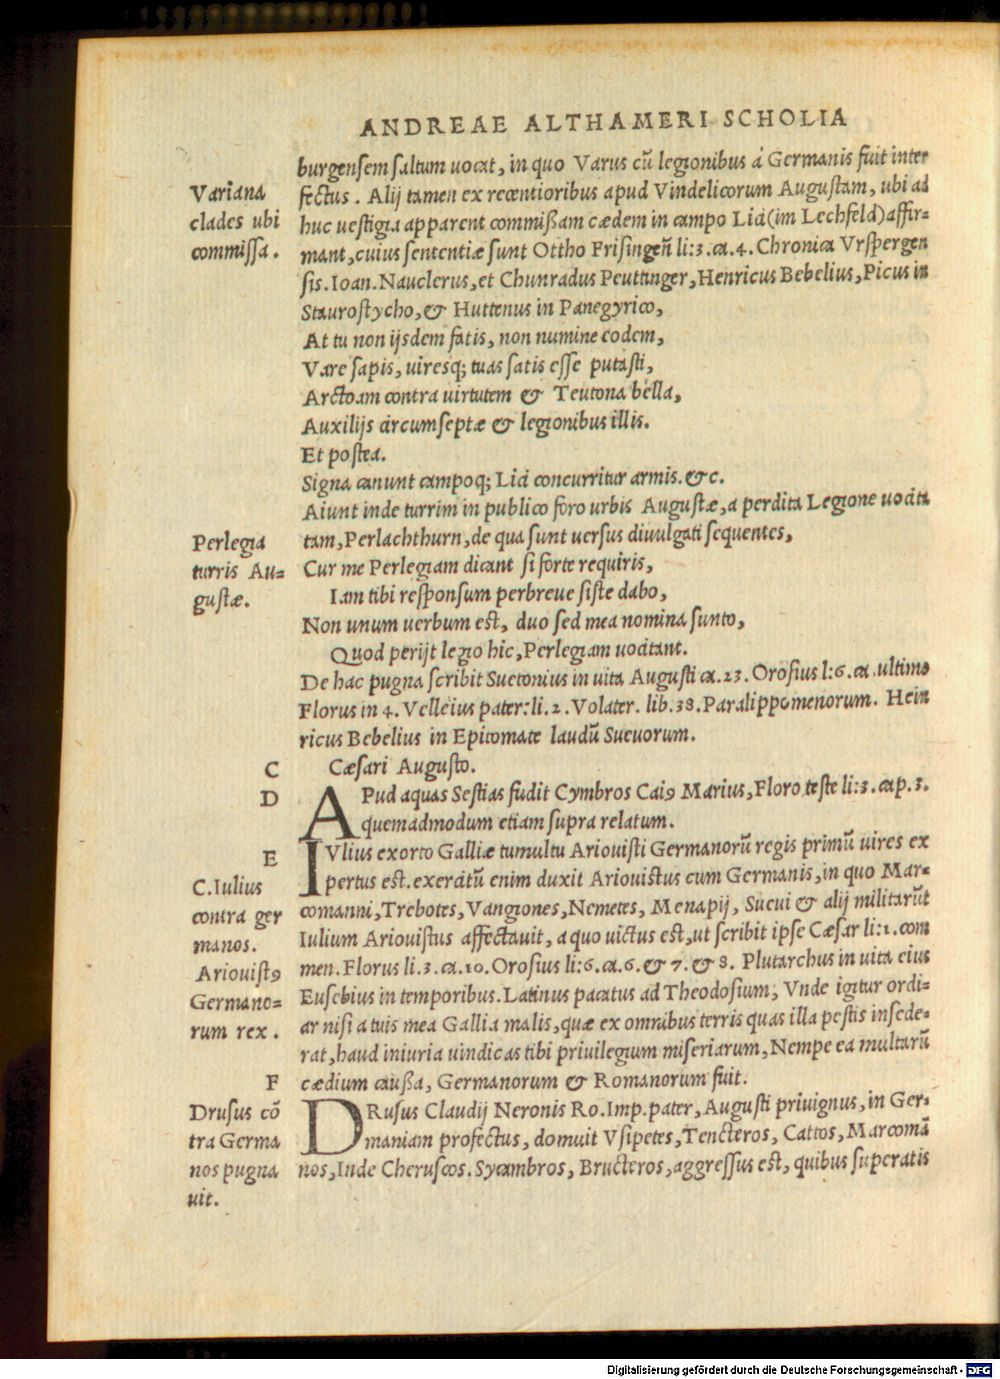 ANDREAE ALTHAMERI SCHOLIA
burgensem saltum uocat, in quo Varus cū legionibus á Germanis fuit inter
fectus. Alij tamen ex recentioribus apud Vindelicorum Augustam, ubi ad
huc uestigia apparent commißam cædem in campo Lici (im Lechfeld) affir=
mant, cuius sententiæ sunt Ottho Frisingeñ li:3.ca.4. Chronica Vrspergen
sis. Ioan. Nauclerus, et Chunradus Peuttinger, Henricus Bebelius, Picus in
Staurostycho, & Huttenus in Panegyrico,
At tu non ijsdem fatis, non numine eodem,
Vare sapis, uiresq; tuas satis esse putasti,
Arctoam contra uirtutem & Teutona bella,
Auxilijs circumseptæ & legionibus illis.
Et postea.
Signa canunt campoq; Lici concurritur armis. &c.
Aiunt inde turrim in publico foro urbis Augustæ, a perdita Legione uocita
tam, Perlachthurn, de qua sunt uersus diuulgati sequentes,
Cur me Perlegiam dicant si forte requiris,
Iam tibi responsum perbreue siste dabo,
Non unum uerbum est, duo sed mea nomina sunto,
Quod perijt legio hic, Perlegiam uocitant.
De hac pugna scribit Suetonius in uita Augusti ca.23. Orosius l:6.ca.ultimo
Florus in 4. Velleius pater: li.2. Volater. lib.38. Paralippomenorum. Hein
ricus Bebelius in Epitomate laudū Sueuorum.
C Cæsari Augusto.
D APud aquas Sestias fudit Cymbros Caiꝰ Marius, Floro teste li:3.cap.3.
quemadmodum etiam supra relatum.
E IVlius exorto Galliæ tumultu Ariouisti Germanorū regis primū uires ex
pertus est. exercitū enim duxit Ariouistus cum Germanis, in quo Mar=
comanni, Trebotes, Vangiones, Nemetes, Menapij, Sueui & alij militarūt
Iulium Ariouistus affectauit, a quo uictus est, ut scribit ipse Cæsar li:1.com
men. Florus li.3.ca.10. Orosius li:6.ca.6.& 7.& 8. Plutarchus in uita eius
Eusebius in temporibus. Latinus pacatus ad Theodosium, Vnde igitur ordi=
ar nisi a tuis mea Gallia malis, quæ ex omnibus terris quas illa pestis insede=
rat, haud iniuria uindicas tibi priuilegium miseriarum, Nempe ea multarū
F cædium caußa, Germanorum & Romanorum fuit.
DRusus Claudij Neronis Ro. Imp. pater, Augusti priuignus, in Ger=
maniam profectus, domuit Vsipetes, Tencteros, Cattos, Marcomā
nos, Inde Cheruscos. Sycambros, Bructeros, aggressus est, quibus superatis
Variana
clades ubi
commissa.
Perlegia
turris Au=
gustæ.
C. Iulius
contra ger
manos.
Ariouistꝰ
Germano=
rum rex.
Drusus cō
tra Germa
nos pugna
uit.
Digitalisierung gefördert durch die Deutsche Forschungsgemeinschaft - DFG